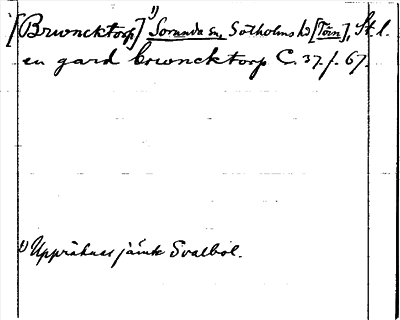 [Brwncktorp] 1) Sorunda sn, Sotholms hd [Törn], St. l.
en gard brwncktorp C. 37. f. 67.
1) Uppräknas jämte Svalbol.